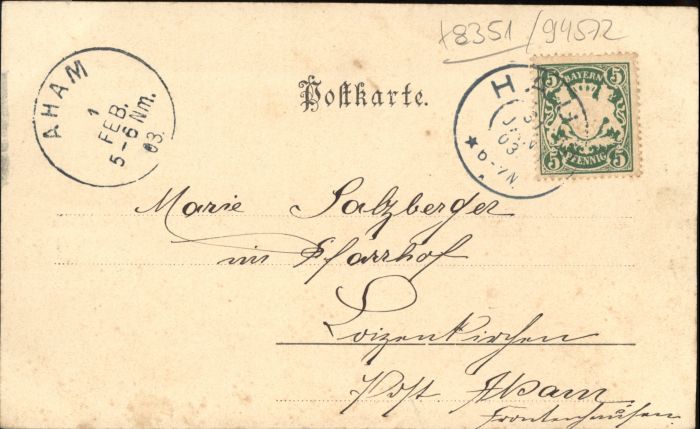 +8351/94572
AHAM
1
FEB.
5-6 Nm.
03.
Postkarte.
H
JAN
03
6-7N.
5 BAYERN 5
5 PFENNIG 5
Marie Salzberger
im Pfarrhof
Loizenkirchen
Post Aham
Frontenhausen